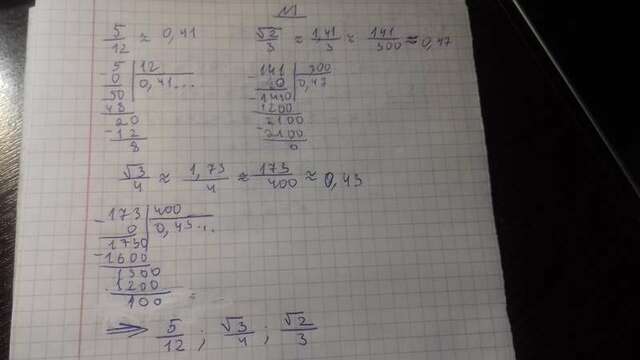 N1
5/12 ≈ 0,41
√2/3 ≈ 1,41/3 ≈ 141/300 ≈ 0,47
5 | 12
0 | 0,41...
50
48
20
-12
8
-141 | 300
0 | 0,47
-1410
1200
-2100
2100
0
√3/4 ≈ 1,73/4 ≈ 173/400 ≈ 0,43
-173 | 400
0 | 0,43...
1730
-1600
1300
1200
100
⇒ 5/12 ; √3/4 ; √2/3